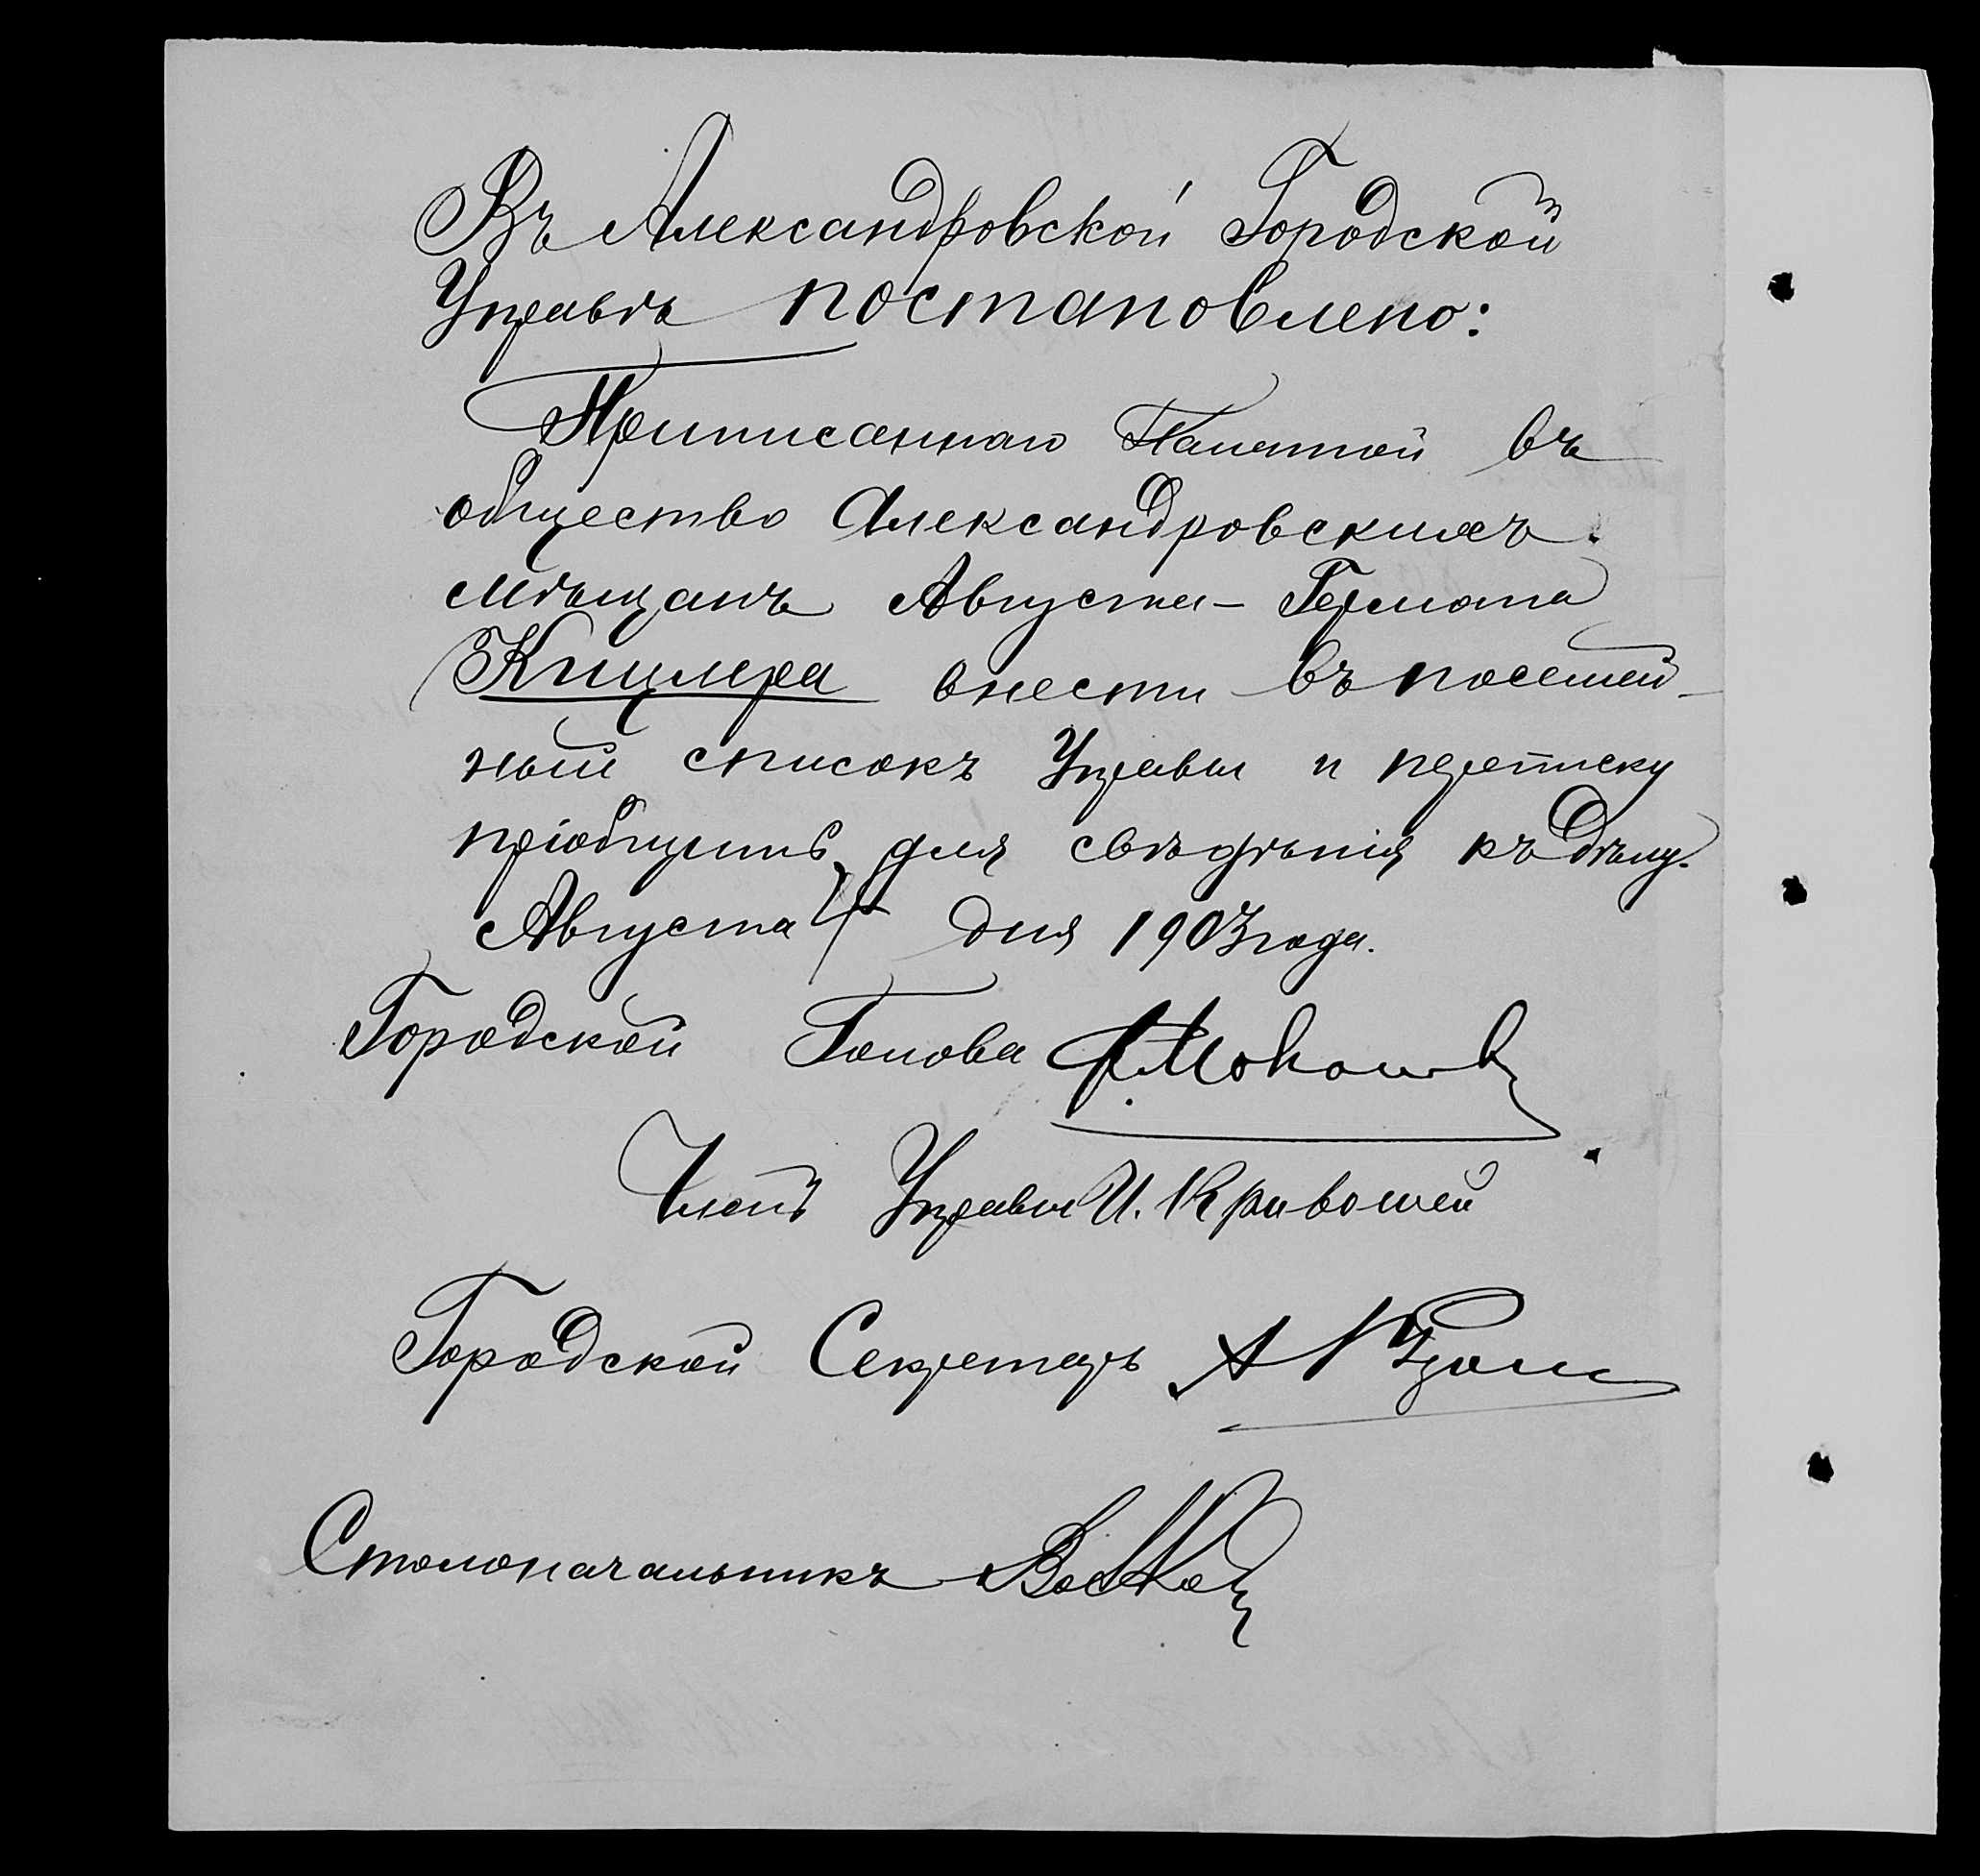 Въ Александровской Городской
Управѣ постановлено:
Приписаннаго Палатой въ
общество Александровскихъ
мѣщанъ Августа-Германа
Кицлера внести въ посемей-
ный списокъ Управы и переписку
пріобщить для свѣдѣнія къ дѣлу.
Августа дня 1903 года.
Городской Голова
Членъ Управы И. Кривошей
Городской Секретарь
Столоначальникъ